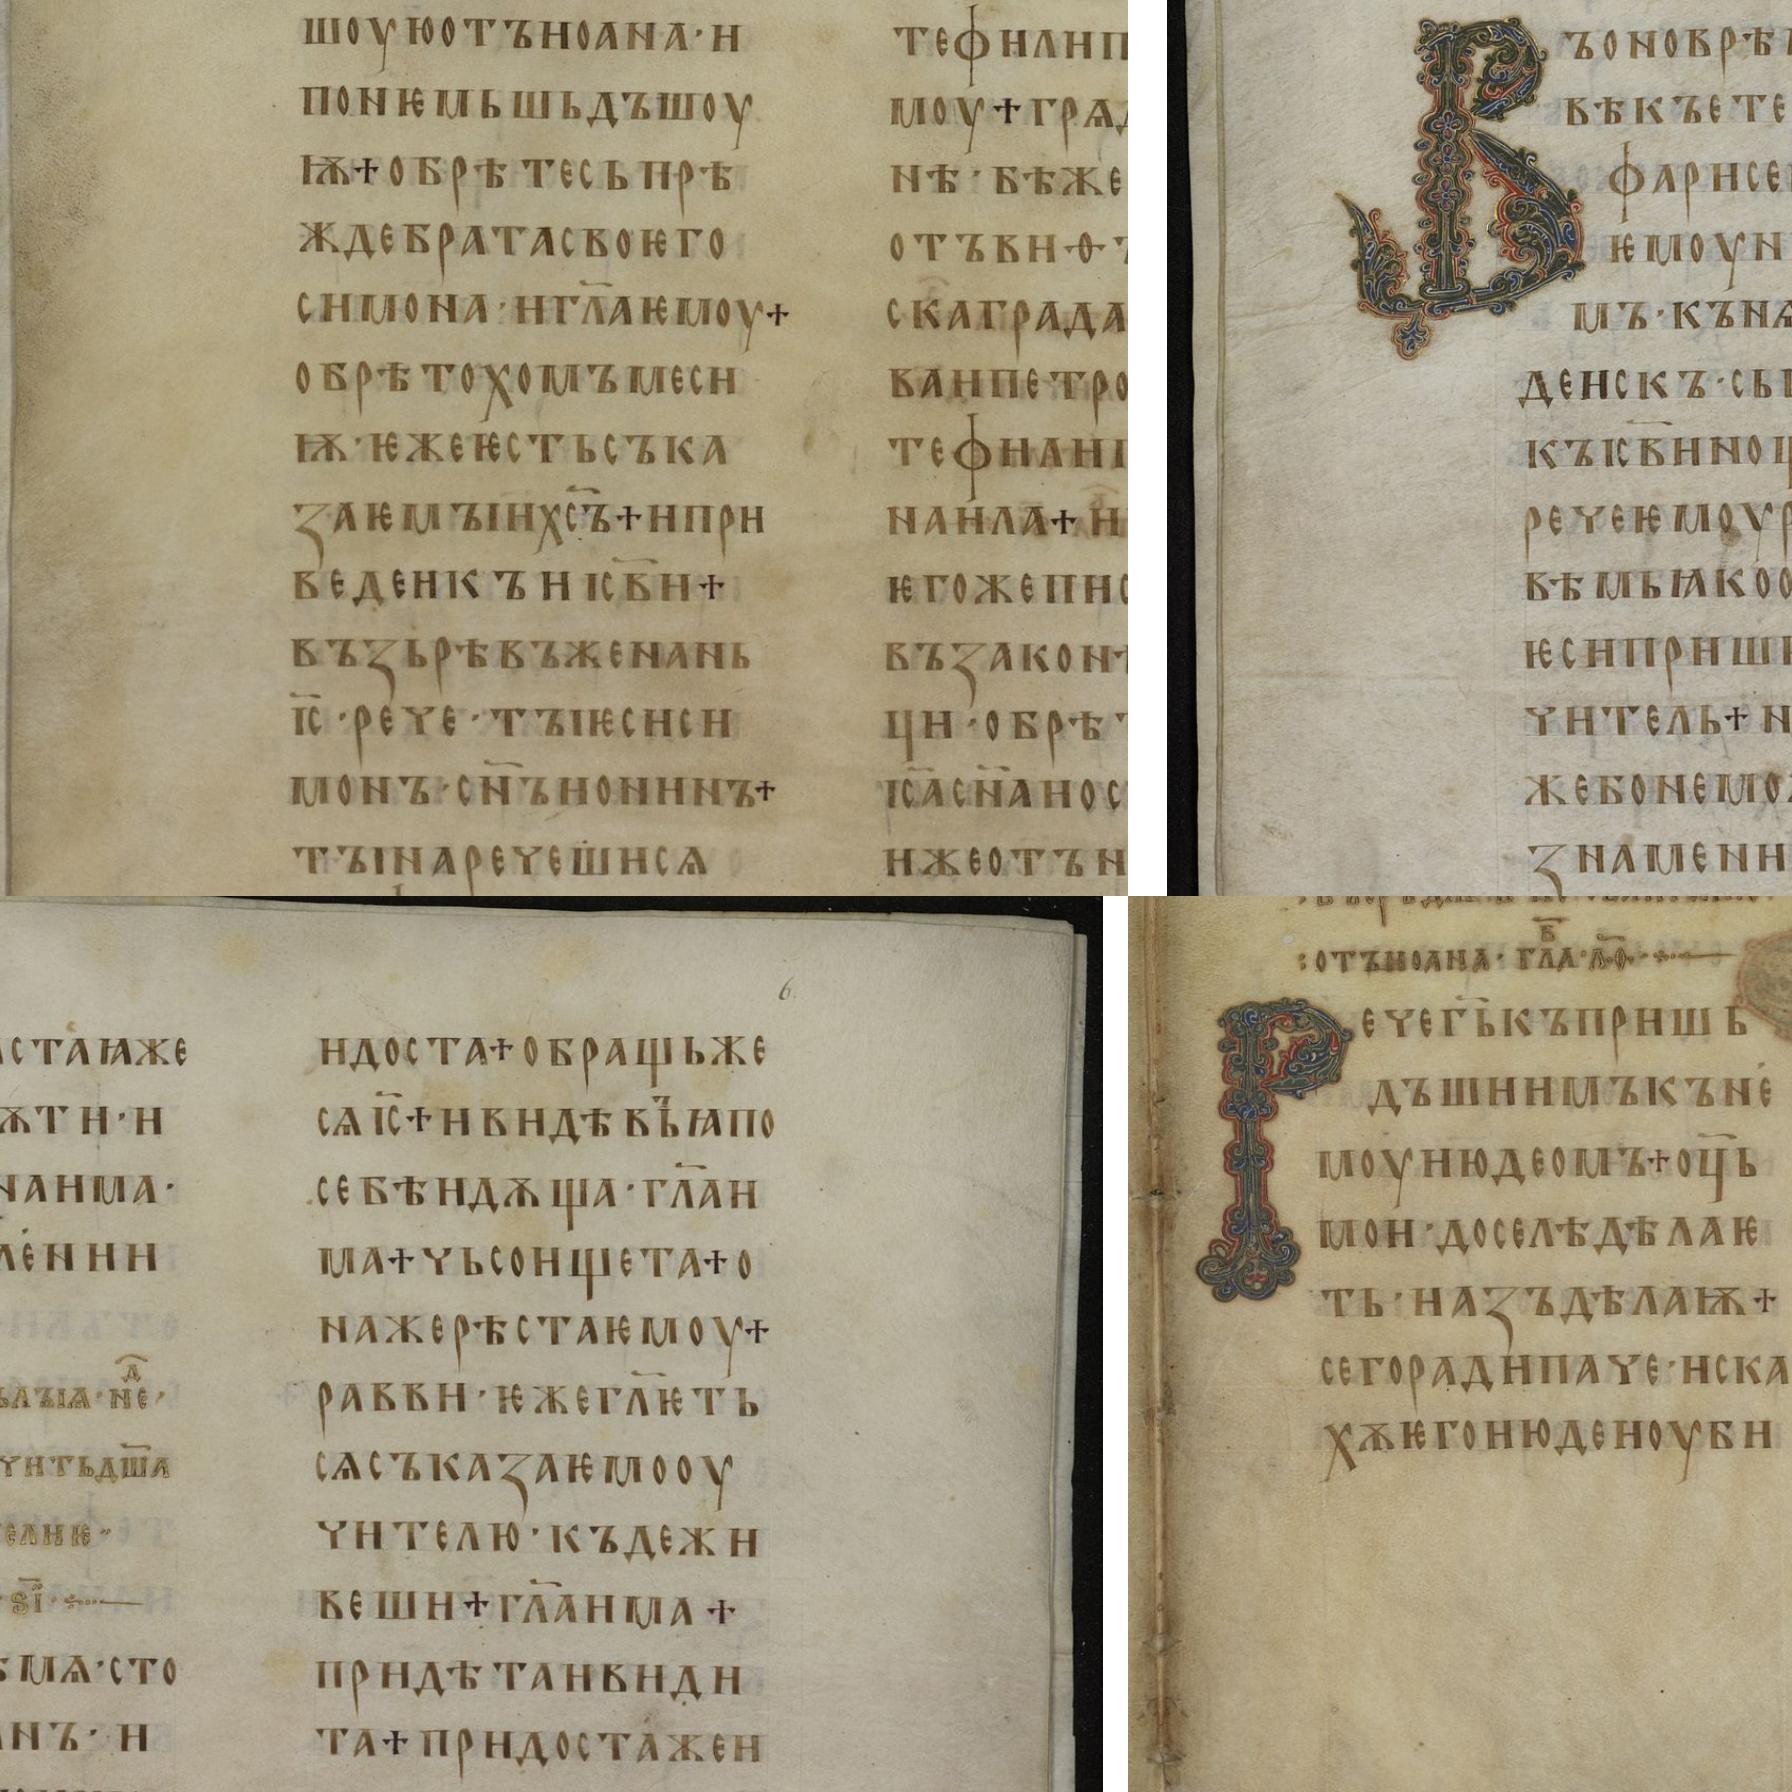 шоуюотъиоана·и
поѥмьшьдъшоу
ѭ+обрѣтесьпрѣ
ждебратасвоѥго
симона·игл҃аѥмоу+
обрѣтохомъмеси
ѭ·ѥжеѥстьсъка
заѥмыихс҃ъ+ипри
ведеикъиі҃св҃и+
възьрѣвъженань
і҃с·рече·тыѥсиси
монъ·сн҃ъионинъ+
тыинаречешися
тефилип
моу+гряд
нѣ·бѣже
отъви·ѳ·ъ
скаграда
ванпетро
тефнані
наила+и
ѥгожепис
възакон
ци·обрѣт
і҃са҃сн҃аиос
ижеотън
Въоноврѣ
вѣкъете
фарисе
ѥмоуи
мъ·кънѧ
деискъ·сьп
къі҃св҃иинощ
речеѥмоур
вѣмьꙗкоо
ѥсиприш
читель+н
жебонемо
знамени
6.
стаꙗже
ѫти·и
наима·
лении
лъіѧ·не҃д·
чнтьдш҃а
елиѥ
·ѕ҃і·
мѧ·сто
нъ·и
идоста+обращьже
сѧі҃с+ивидѣвъꙗпо
себѣидѫща·гл҃аи
ма+чьсоищета+о
нажерѣстаѥмоу+
равви·ѥжегл҃ѥть
сѧсъказаѥмооу
чителю·къдежи
веши+гл҃аима+
придѣтаивиди
та+придостажеи
:отъиоана·гл҃а·л҃ѳ·
Речег҃ькъпришь
дъшиимъкъне
моуиюдеомъ+оц҃ь
мои·доселѣдѣлаѥ
ть·иазъдѣлаѭ+
сегорадипаче·иска
хѫѥгоиюдеиоуби